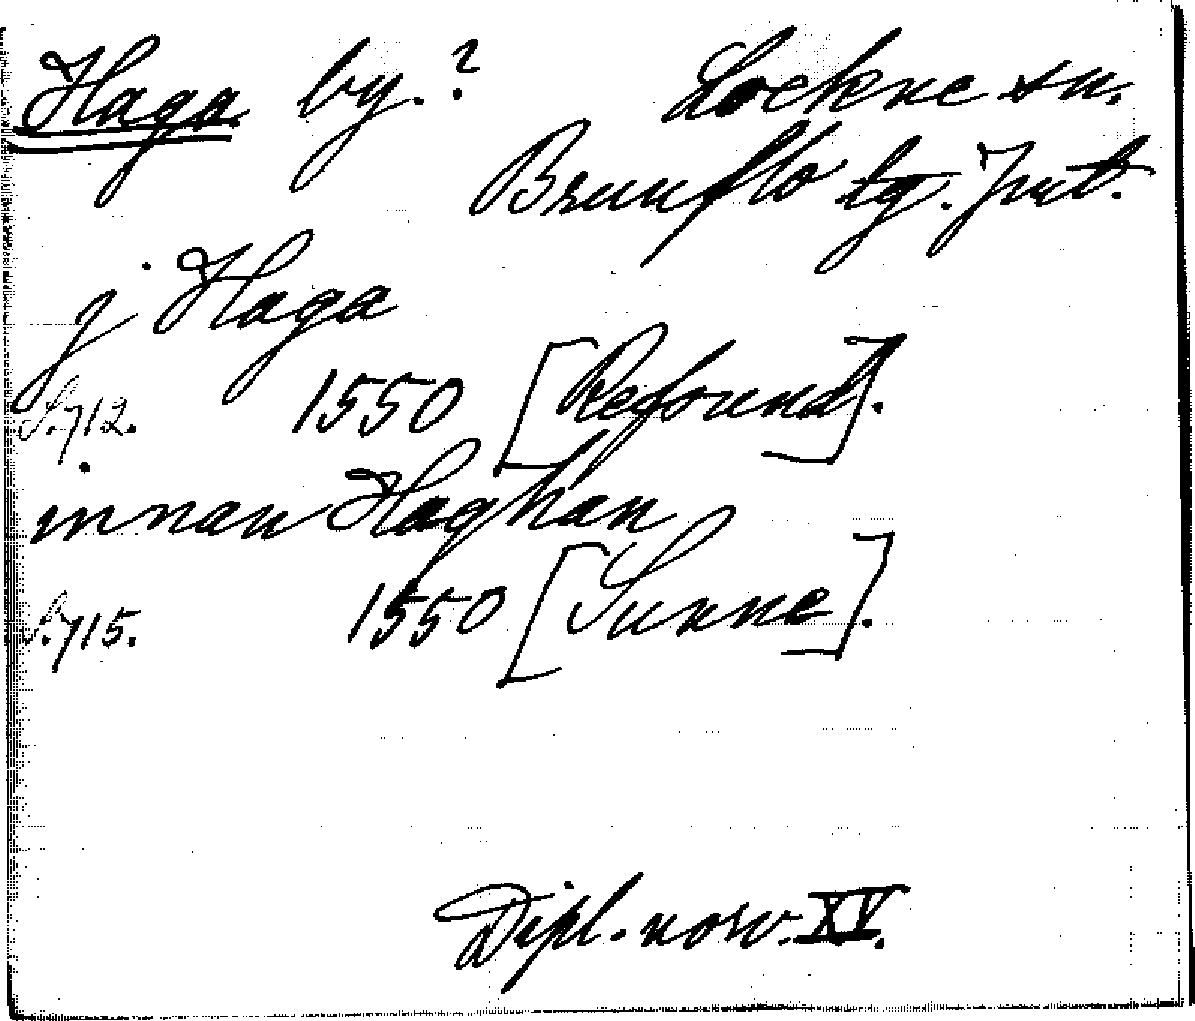 Haga by.? Lockne sn.
Brunflo tg. Jmt.
j Haga
S. 712. 1550 [Refsund].
innan Haghan
S. 715. 1550 [Sunne].
Dipl. norv. XV.